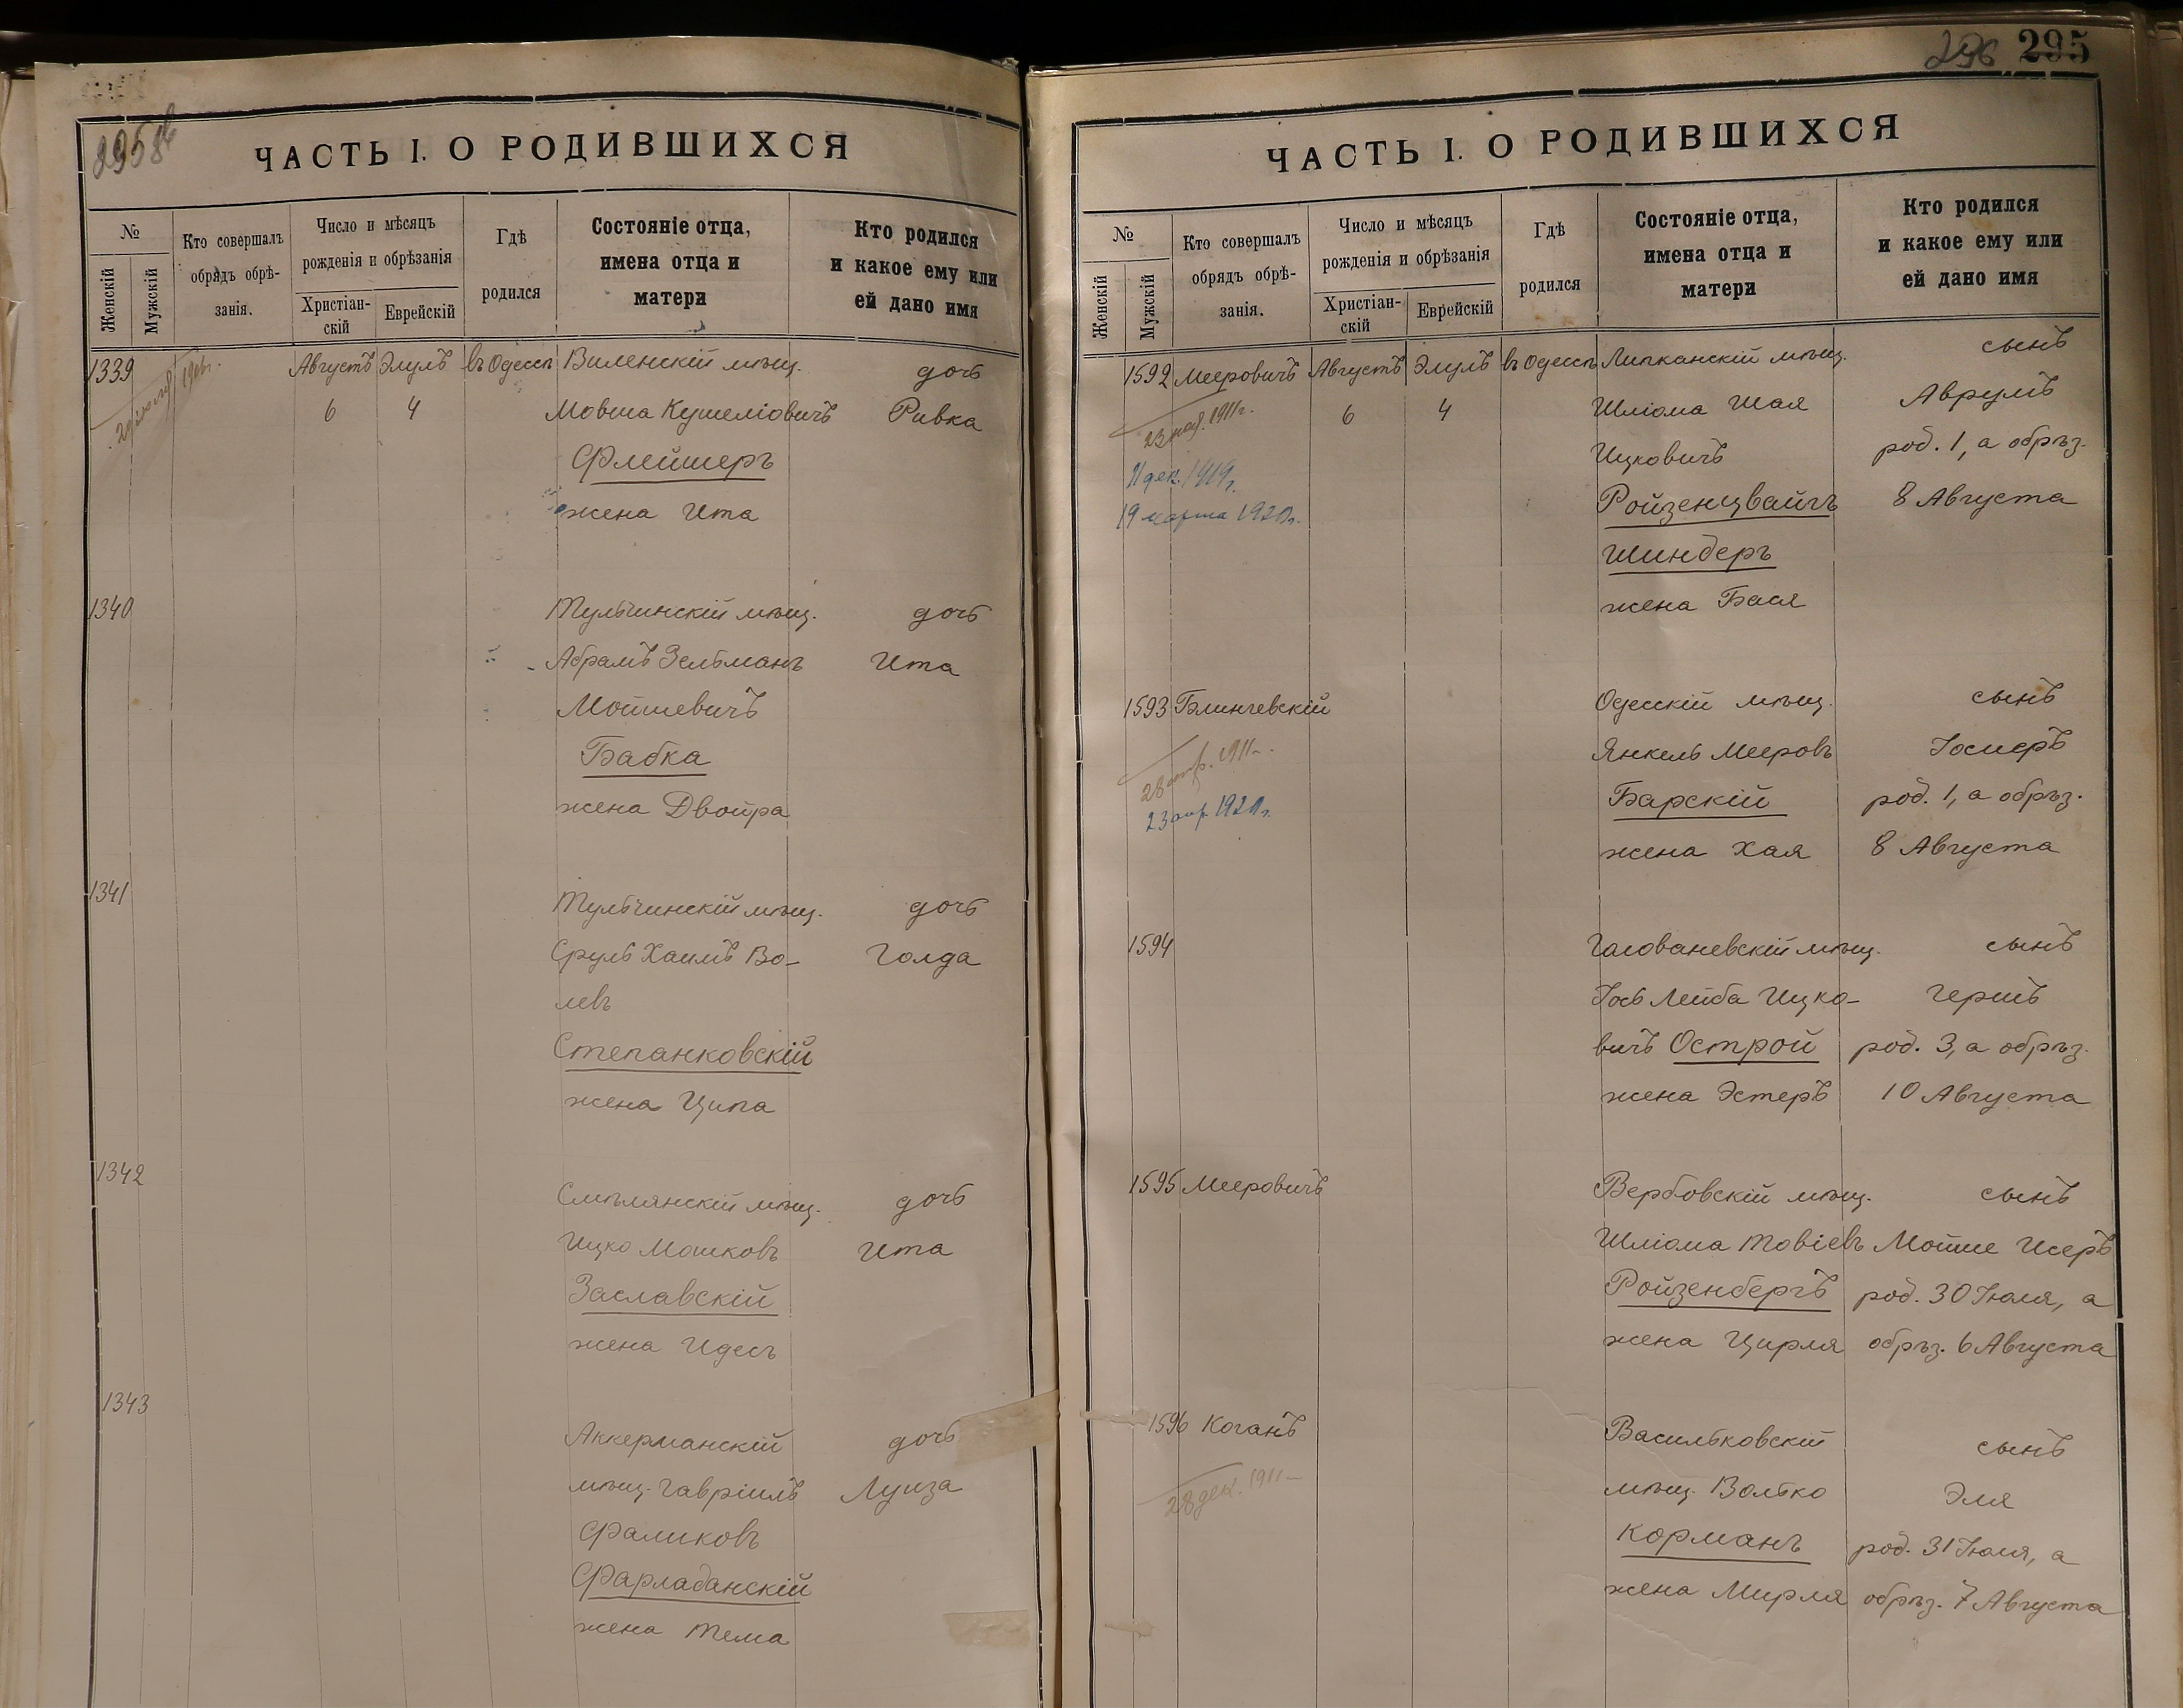 295
ЧАСТЬ I. О РОДИВШИХСЯ
№
Женскій
Мужскій
Кто совершалъ
обрядъ обрѣ-
занія.
Число и мѣсяцъ
рожденія и обрѣзанія
Христіан-
скій
Еврейскій
Гдѣ
родился
Состояніе отца,
имена отца и
матери
Кто родился
и какое ему или
ей дано имя
1339 Августъ Элулъ въ Одессѣ Виленскій мѣщ. дочь
6 4 Мовша Кушеліовичъ Ривка
Флейшеръ
жена Ита
1340 Тульчинскій мѣщ. дочь
Абрамъ Зельманъ Ита
Мошкевичъ
Бабка
жена Двойра
1341 Тульчинскій мѣщ. дочь
Сруль Хаимъ Во- Голда
левъ
Степанковскій
жена Ципа
1342 Смѣлянскій мѣщ. дочь
Ицко Мошковъ Ита
Заславскій
жена Идесъ
1343 Аккерманскій дочь
мѣщ. Гавріилъ Луиза
Фаликовъ
Фарладанскій
жена Тема
296 295
ЧАСТЬ I. О РОДИВШИХСЯ
№
Женскій
Мужскій
Кто совершалъ
обрядъ обрѣ-
занія.
Число и мѣсяцъ
рожденія и обрѣзанія
Христіан-
скій
Еврейскій
Гдѣ
родился
Состояніе отца,
имена отца и
матери
Кто родился
и какое ему или
ей дано имя
1592 Мееровичъ Августъ Элулъ въ Одессѣ Липканскій мѣщ. сынъ
6 4 Шліома Шая Аврумъ
23 1911г.
Ицковичъ род. 1, а обрѣз.
11 дек. 1919г.
Ройзенцвайгъ 8 Августа
19 марта 1920г.
Шинберъ
жена Бася
1593 Блинчевскій Одесскій мѣщ. сынъ
Янкель Мееровъ Іосиеръ
28 1911г.
Барскій род. 1, а обрѣз.
23 апр 1920г.
жена Хая 8 Августа
1594 Головановскій мѣщ. сынъ
Іось Лейба Ицко- Гершъ
вичъ Острой род. 3, а обрѣз.
жена Эстеръ 10 Августа
1595 Мееровичъ Вербовскій мѣщ. сынъ
Шліома Товіевъ Мойше Исеръ
Ройзенбергъ род. 30 Іюля, а
жена Цирля обрѣз. 6 Августа
1596 Коганъ Васильковскій сынъ
мѣщ. Волько Эля
28 дек. 1911
Корманъ род. 31 Іюля, а
жена Мирля обрѣз. 7 Августа